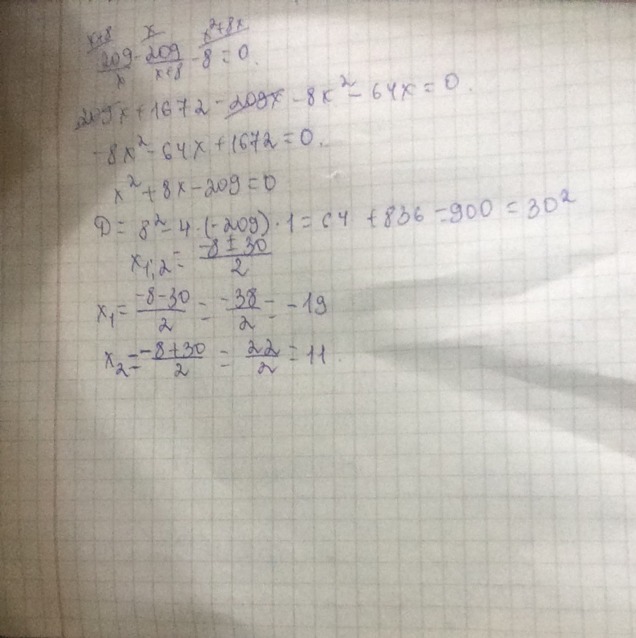 x+8 x x²+8x
209/x - 209/x+8 - 8 = 0.
209x + 1672 - 209x - 8x² - 64x = 0.
-8x² - 64x + 1672 = 0.
x² + 8x - 209 = 0
D = 8² - 4·(-209)·1 = 64 + 836 = 900 = 30²
x1;2 = -8±30/2
x₁ = -8-30/2 = -38/2 = -19
x₂ = -8+30/2 = 22/2 = 11.